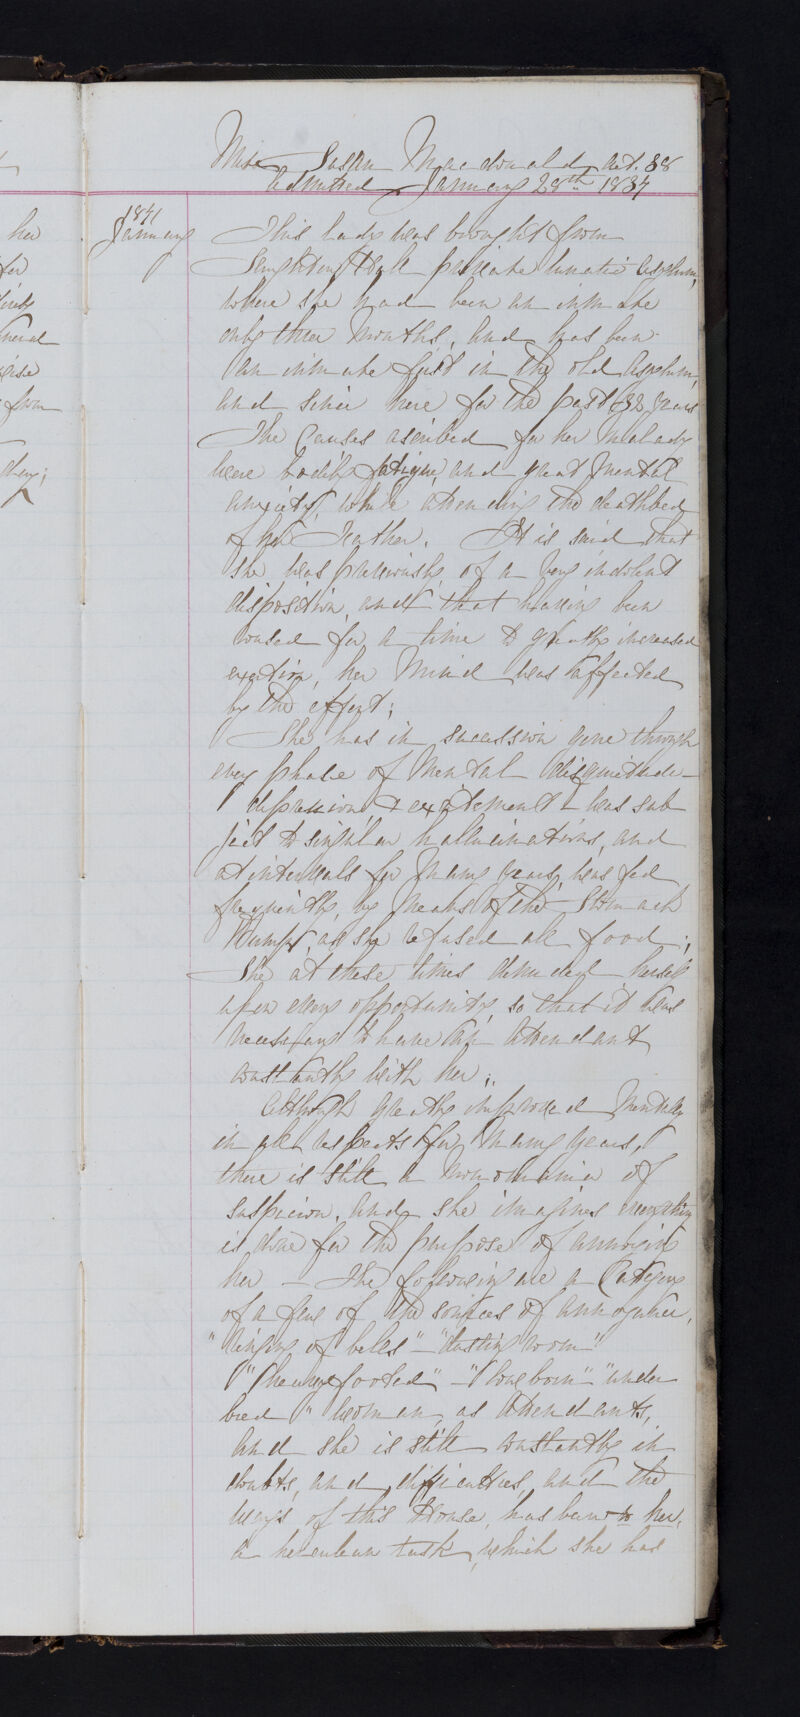 her
for
from
they;
Miss Susan Macdonald aet. 38
Admitted January 28th 1837
1871
January
This lady was brought from
private lunatic asylum,
where she had been an inmate
only three months, and has been
an inmate first in the old asylum,
and since here for the past 32 years
The Causes ascribed for her Malady
were bodily fatigue, and great mental
anxiety, while attending the deathbed
of her Father. It is said that
she was previously of a very indolent
disposition, and that having been
roused for a time to greatly increased
exertion, her Mind was affected
by the effort;
She has in succession gone through
every phase of Mental disquietude -
depression & excitement - was sub
ject to singular hallucinations, and
at intervals for many years, was fed
frequently, by means of the Stomach
Pump, as she refused all food;
She at these times denuded herself
upon every opportunity, so that it was
necessary to have an Attendant
constantly with her;
Although greatly improved Mentally
in all respects for many years,
there is still a monomania of
suspicion, and she imagines everything
is done for the purpose of annoying
her - The following are a Category
of a few of the sources of annoyance,
"ringing of bells" - "dusting room"
"heavy footed" - "low born" - "under
bred" women, as Attendants,
and she is still constantly in
doubts, and difficulties, and the
ways of this House, has been to her,
a herculean task, which she has